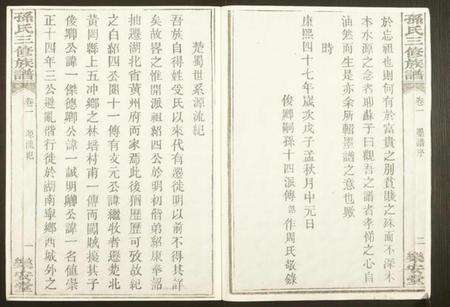 孫氏三修族譜
卷一 墨譜序
二
樂安堂
於忘祖也則何有於富貴之別貧賤之殊而不深木
本水源之念者耶蘇子曰觀吾之譜者孝悌之心自
油然而生是亦余所輯墨譜之意也歟
時
康熙四十七年歲次戊子孟秋月中元日
俊卿嗣孫十四派傳 作周氏敬錄
孫氏三修族譜
卷一 源流記
一
樂安堂
楚蜀世系源流紀
吾族自得姓受氏以來代有遷徙明以前不得其詳
矣故畧之惟開派祖紹四公於明初偕弟紹康華紹
抽遷湖北省黃州府而家焉此後猶歷歷可攷故紀
之白紹四公閱十一傳有文元公諱繼牧者遷楚北
黃岡縣上五冲鄉之林培村甫一傳而闖賊擾其子
俊卿公諱一傑德卿公諱一誠明卿公諱一名值崇
正十四年三公避亂偕行徙於湖南寧鄉西城外之